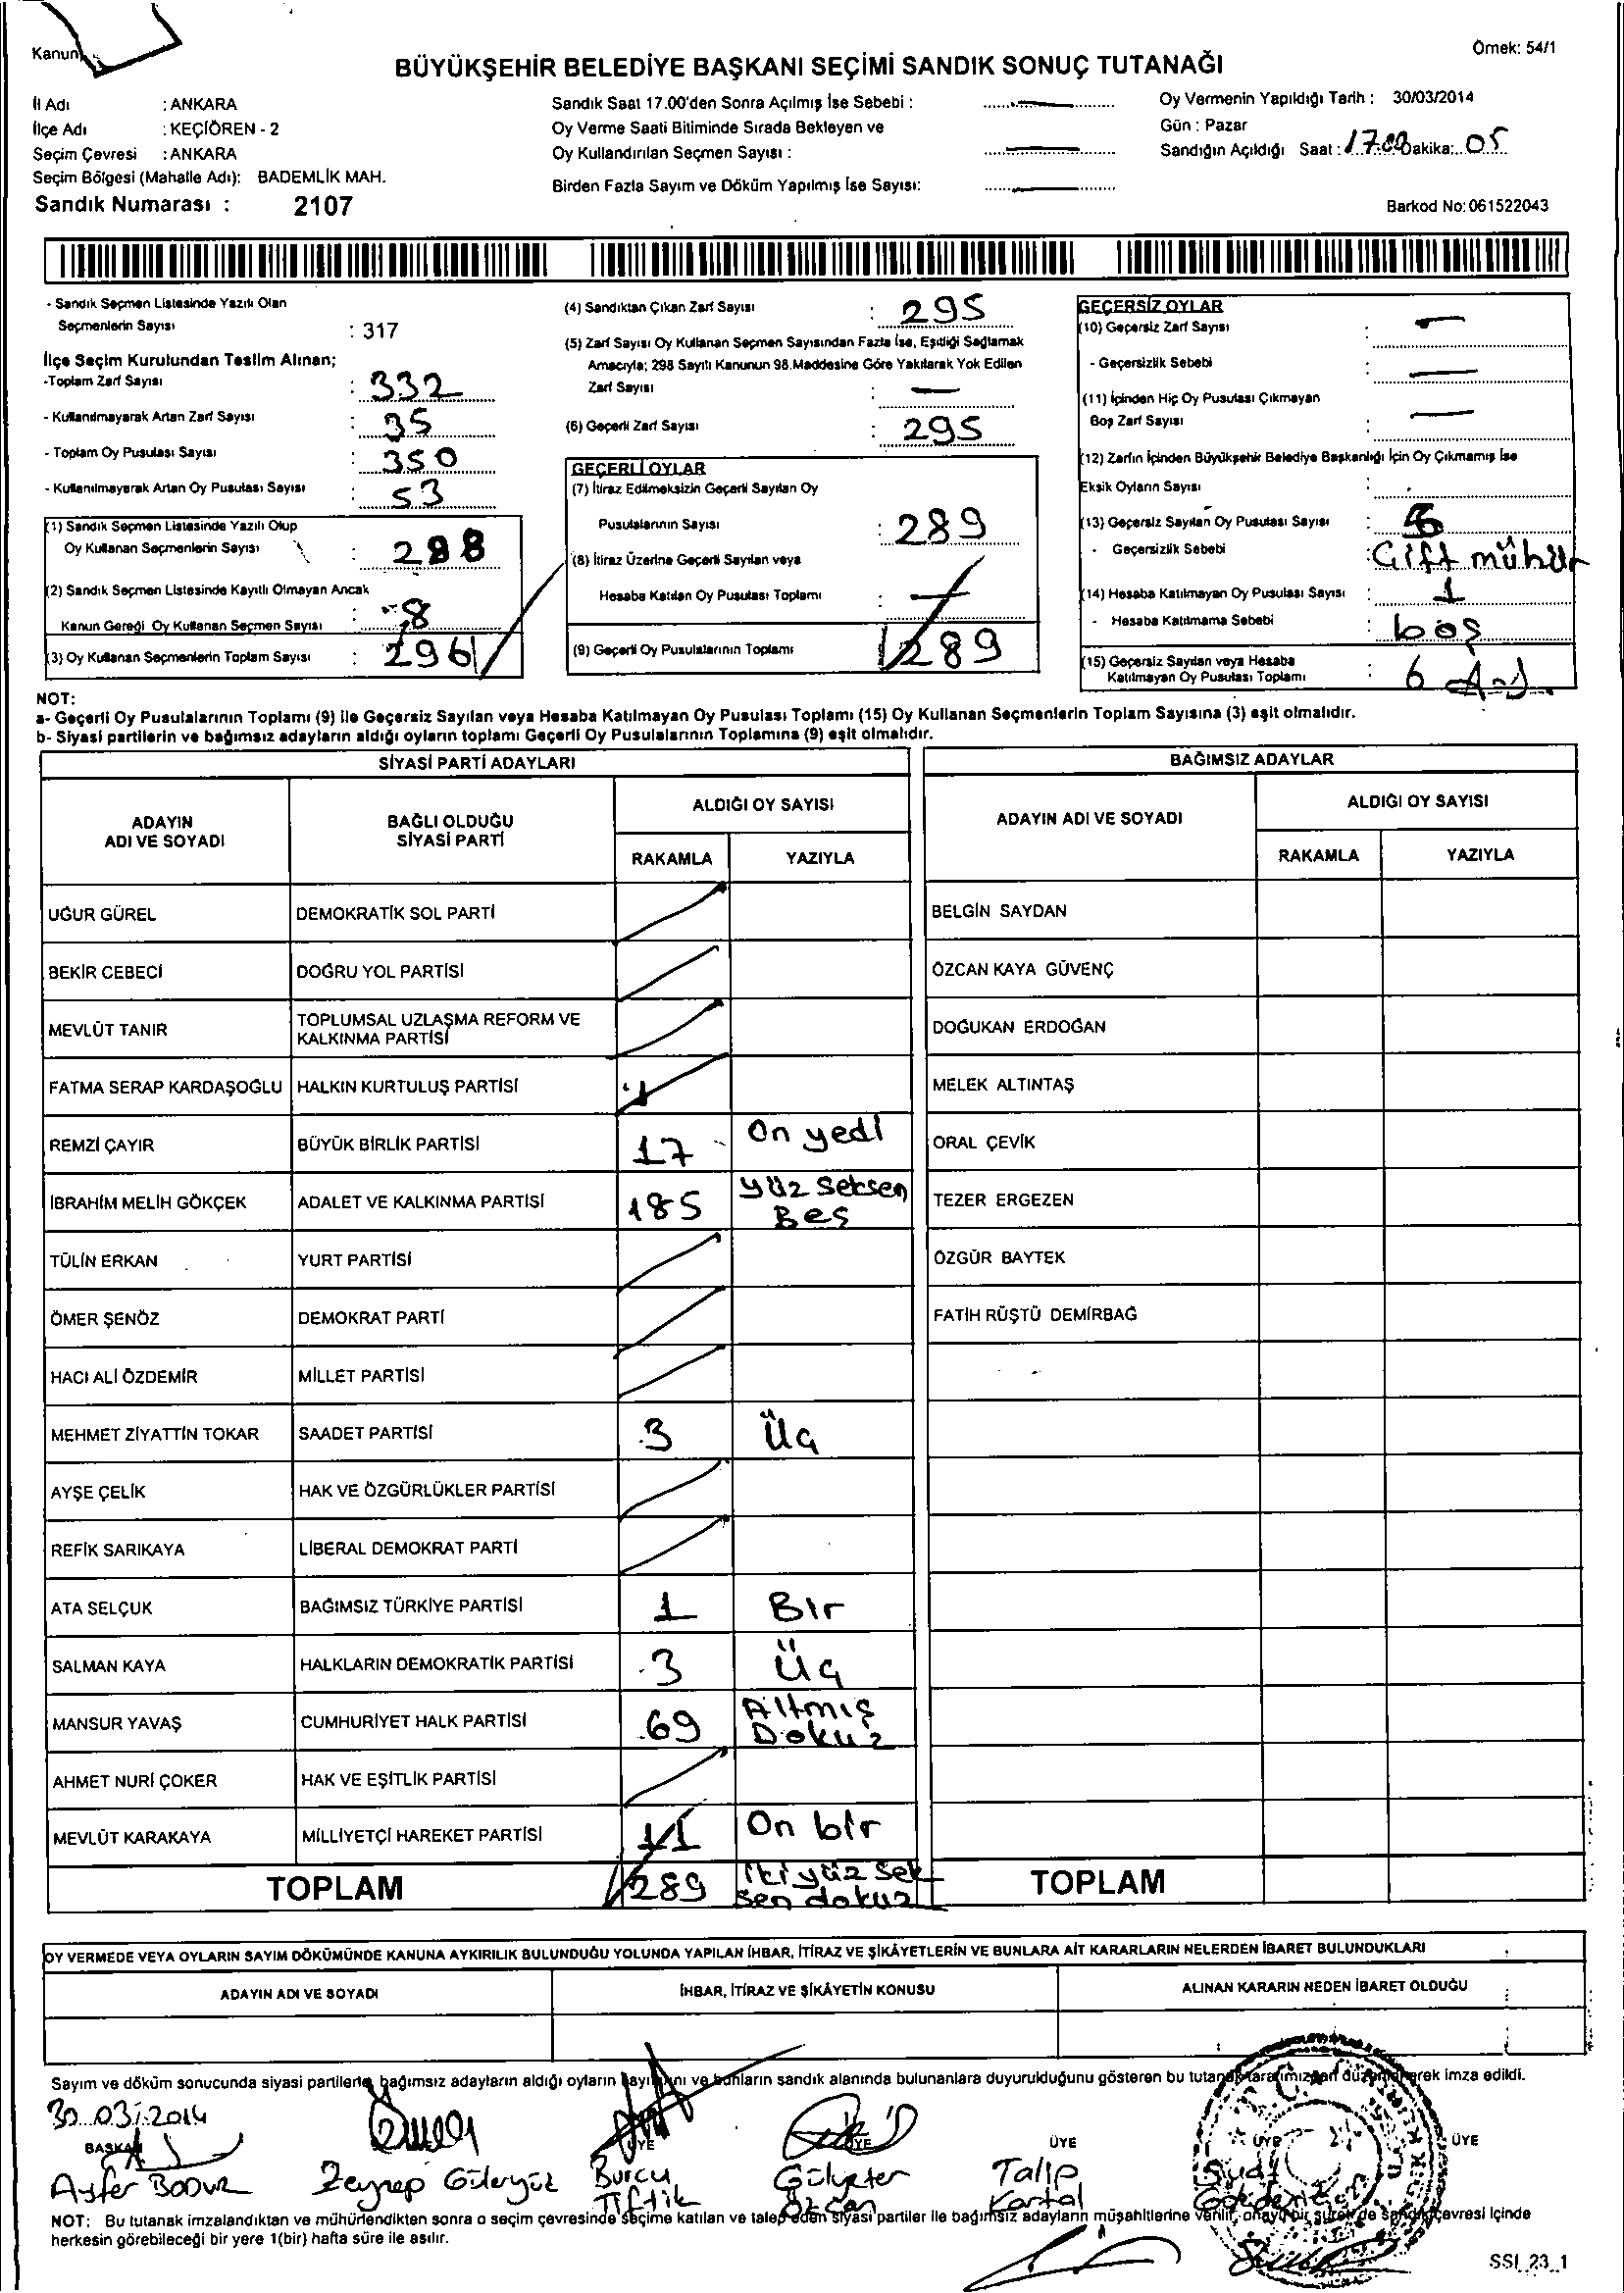 Kanun
Örnek: 54/1
BÜYÜKŞEHİR BELEDİYE BAŞKANI SEÇİMİ SANDIK SONUÇ TUTANAĞI
İl Adı : ANKARA
İlçe Adı : KEÇİÖREN - 2
Seçim Çevresi : ANKARA
Seçim Bölgesi (Mahalle Adı): BADEMLİK MAH.
Sandık Numarası : 2107
Sandık Saat 17.00'den Sonra Açılmış İse Sebebi :
Oy Verme Saati Bitiminde Sırada Bekleyen ve
Oy Kullandırılan Seçmen Sayısı :
Birden Fazla Sayım ve Döküm Yapılmış İse Sayısı:
Oy Vermenin Yapıldığı Tarih : 30/03/2014
Gün : Pazar
Sandığın Açıldığı Saat : 17.00 Dakika: 05
Barkod No: 061522043
- Sandık Seçmen Listesinde Yazılı Olan
Seçmenlerin Sayısı : 317
İlçe Seçim Kurulundan Teslim Alınan;
-Toplam Zarf Sayısı : 332
- Kullanılmayarak Artan Zarf Sayısı : 35
- Toplam Oy Pusulası Sayısı : 350
- Kullanılmayarak Artan Oy Pusulası Sayısı : 53
(1) Sandık Seçmen Listesinde Yazılı Olup
Oy Kullanan Seçmenlerin Sayısı : 288
(2) Sandık Seçmen Listesinde Kayıtlı Olmayan Ancak
Kanun Gereği Oy Kullanan Seçmen Sayısı : 8
(3) Oy Kullanan Seçmenlerin Toplam Sayısı : 296
(4) Sandıktan Çıkan Zarf Sayısı : 295
(5) Zarf Sayısı Oy Kullanan Seçmen Sayısından Fazla İse, Eşitliği Sağlamak
Amacıyla; 298 Sayılı Kanunun 98.Maddesine Göre Yakılarak Yok Edilen
Zarf Sayısı : —
(6) Geçerli Zarf Sayısı : 295
GEÇERLİ OYLAR
(7) İtiraz Edilmeksizin Geçerli Sayılan Oy
Pusulalarının Sayısı : 289
(8) İtiraz Üzerine Geçerli Sayılan veya
Hesaba Katılan Oy Pusulası Toplamı : —
(9) Geçerli Oy Pusulalarının Toplamı 289
GEÇERSİZ OYLAR
(10) Geçersiz Zarf Sayısı : —
- Geçersizlik Sebebi : —
(11) İçinden Hiç Oy Pusulası Çıkmayan
Boş Zarf Sayısı : —
(12) Zarfın İçinden Büyükşehir Belediye Başkanlığı İçin Oy Çıkmamış İse
Eksik Oyların Sayısı :
(13) Geçersiz Sayılan Oy Pusulası Sayısı :
- Geçersizlik Sebebi : Çift mühür
(14) Hesaba Katılmayan Oy Pusulası Sayısı : 1
- Hesaba Katılmama Sebebi : boş
(15) Geçersiz Sayılan veya Hesaba
Katılmayan Oy Pusulası Toplamı : 6
NOT:
a- Geçerli Oy Pusulalarının Toplamı (9) ile Geçersiz Sayılan veya Hesaba Katılmayan Oy Pusulası Toplamı (15) Oy Kullanan Seçmenlerin Toplam Sayısına (3) eşit olmalıdır.
b- Siyasi partilerin ve bağımsız adayların aldığı oyların toplamı Geçerli Oy Pusulalarının Toplamına (9) eşit olmalıdır.
SİYASİ PARTİ ADAYLARI
ADAYIN ADI VE SOYADI
BAĞLI OLDUĞU SİYASİ PARTİ
ALDIĞI OY SAYISI
RAKAMLA YAZIYLA
UĞUR GÜREL DEMOKRATİK SOL PARTİ
BEKİR CEBECİ DOĞRU YOL PARTİSİ
MEVLÜT TANIR TOPLUMSAL UZLAŞMA REFORM VE
KALKINMA PARTİSİ
FATMA SERAP KARDAŞOĞLU HALKIN KURTULUŞ PARTİSİ
REMZİ ÇAYIR BÜYÜK BİRLİK PARTİSİ 17 On yedi
İBRAHİM MELİH GÖKÇEK ADALET VE KALKINMA PARTİSİ 185 Yüz Seksen
Beş
TÜLİN ERKAN YURT PARTİSİ
ÖMER ŞENÖZ DEMOKRAT PARTİ
HACI ALİ ÖZDEMİR MİLLET PARTİSİ
MEHMET ZİYATTİN TOKAR SAADET PARTİSİ 3 Üç
AYŞE ÇELİK HAK VE ÖZGÜRLÜKLER PARTİSİ
REFİK SARIKAYA LİBERAL DEMOKRAT PARTİ
ATA SELÇUK BAĞIMSIZ TÜRKİYE PARTİSİ 1 Bir
SALMAN KAYA HALKLARIN DEMOKRATİK PARTİSİ 3 Üç
MANSUR YAVAŞ CUMHURİYET HALK PARTİSİ 69 Altmış
Dokuz
AHMET NURİ ÇOKER HAK VE EŞİTLİK PARTİSİ
MEVLÜT KARAKAYA MİLLİYETÇİ HAREKET PARTİSİ 11 On bir
TOPLAM 289 İkiyüz sek
sen dokuz
BAĞIMSIZ ADAYLAR
ADAYIN ADI VE SOYADI
ALDIĞI OY SAYISI
RAKAMLA YAZIYLA
BELGİN SAYDAN
ÖZCAN KAYA GÜVENÇ
DOĞUKAN ERDOĞAN
MELEK ALTINTAŞ
ORAL ÇEVİK
TEZER ERGEZEN
ÖZGÜR BAYTEK
FATİH RÜŞTÜ DEMİRBAĞ
TOPLAM
OY VERMEDE VEYA OYLARIN SAYIM DÖKÜMÜNDE KANUNA AYKIRILIK BULUNDUĞU YOLUNDA YAPILAN İHBAR, İTİRAZ VE ŞİKÂYETLERİN VE BUNLARA AİT KARARLARIN NELERDEN İBARET BULUNDUKLARI
ADAYIN ADI VE SOYADI İHBAR, İTİRAZ VE ŞİKÂYETİN KONUSU ALINAN KARARIN NEDEN İBARET OLDUĞU
Sayım ve döküm sonucunda siyasi partilerle, bağımsız adayların aldığı oyların sayımını ve bunların sandık alanında bulunanlara duyurulduğunu gösteren bu tutanak tarafımızdan düzenlenerek imza edildi.
30.03.2014
BAŞKAN ÜYE ÜYE ÜYE ÜYE ÜYE
Ayfer BODUR Zeynep Güleryüz Burcu Tiftik Gülçiter Özcan Talip Kartal
NOT: Bu tutanak imzalandıktan ve mühürlendikten sonra o seçim çevresinde seçime katılan ve talep eden siyasi partiler ile bağımsız adayların müşahitlerine verilir, onaylı bir sureti de sandık çevresi içinde
herkesin görebileceği bir yere 1(bir) hafta süre ile asılır.
SSI_23_1